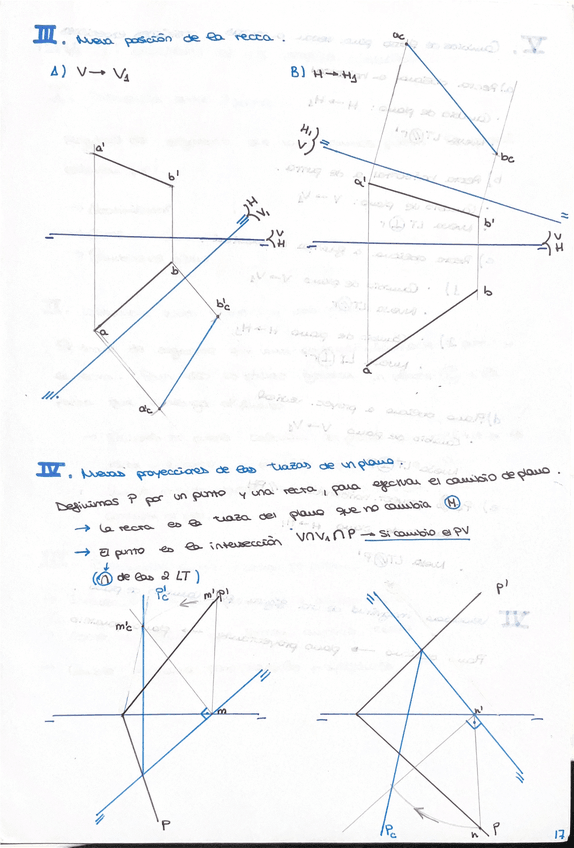 III. Nueva posición de la recta.
A) V → V₁
B) H → H₁
ac
bc
H₁
V
a'
b'
H
V₁
V
H
b
a
b'c
a'c
a'
b'
V
H
b
a
IV. Nuevas proyecciones de las trazas de un plano.
Definimos P por un punto y una recta, para efectuar el cambio de plano.
→ La recta es la traza del plano que no cambia (H)
→ El punto es la intersección V∩V₁∩P → Si cambio el PV
(∩ de las 2 LT)
P'c
m' P'
m'c
m
P
P'
n'
Pc
n
P
17